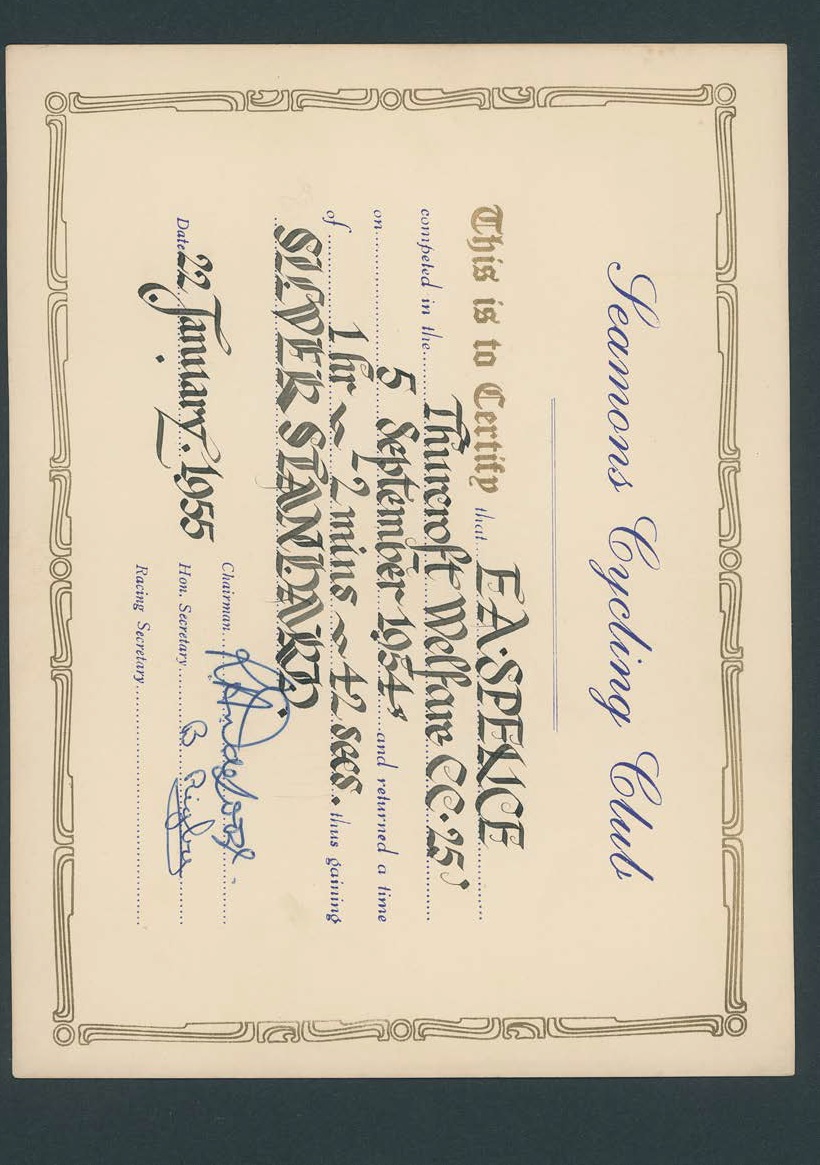 Seamons Cycling Club
This is to Certify that E A·SPENCE
competed in the Thurcroft Welfare CC·25'
on 5 September 1954 and returned a time
of 1 hr ~ 2 mins ~ 42 secs. thus gaining
SILVER STANDARD.
Chairman
Date 22 January. 1955 Hon. Secretary B Rigby
Racing Secretary